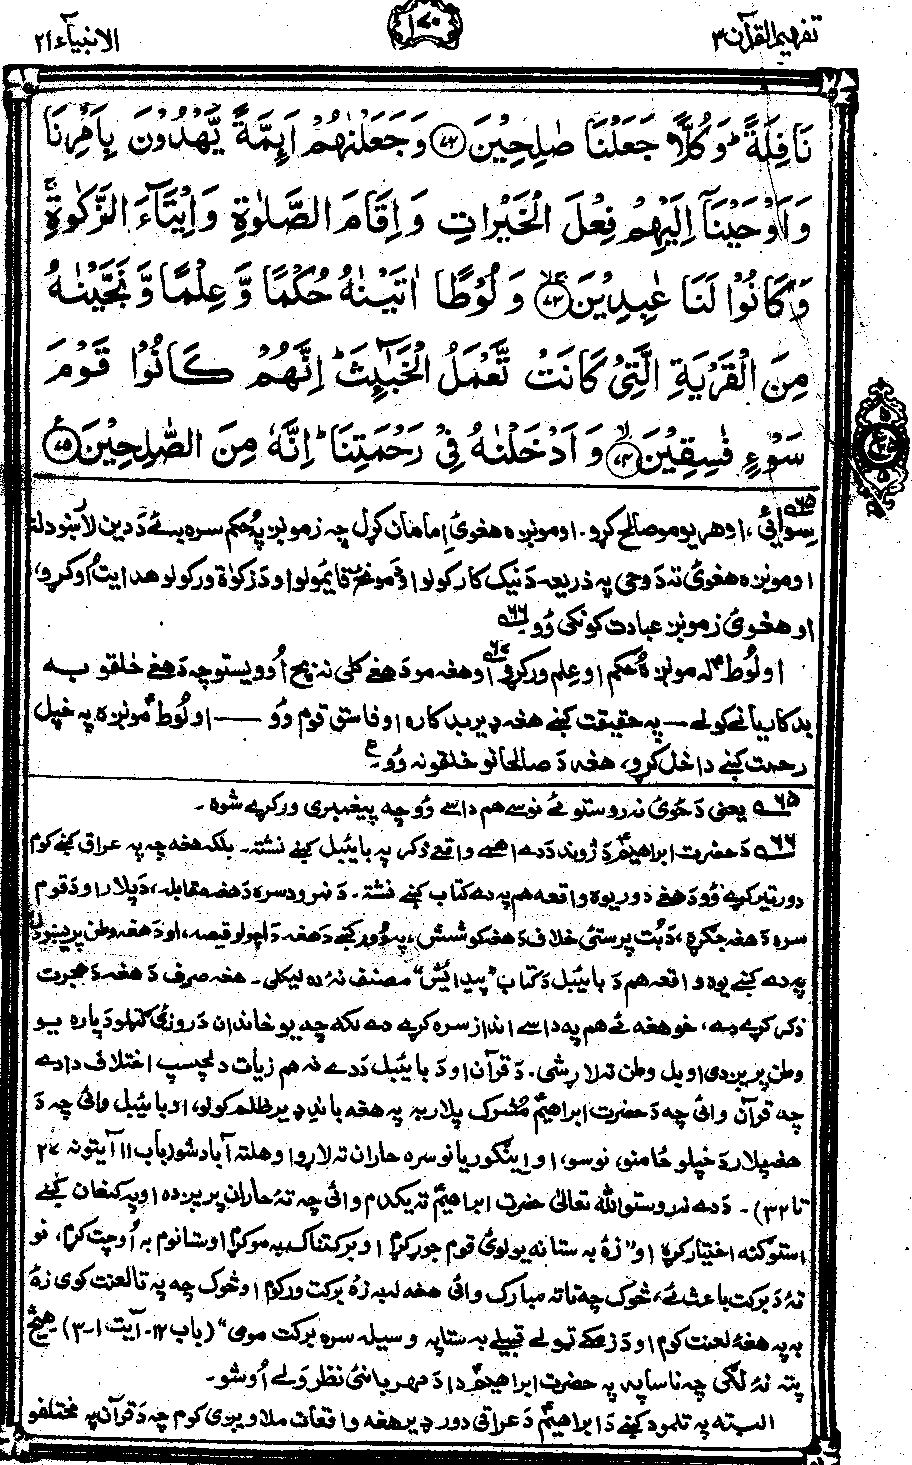 تفهيم القرآن ۳
۱۷۰
الانبیآء ۲۱
نَافِلَةً ؕ وَكُلًّا جَعَلْنَا صٰلِحِيْنَ ﴿۷۲﴾ وَجَعَلْنٰهُمْ اَىِٕمَّةً يَّهْدُوْنَ بِاَمْرِنَا
وَاَوْحَيْنَاۤ اِلَيْهِمْ فِعْلَ الْخَيْرٰتِ وَاِقَامَ الصَّلٰوةِ وَاِيْتَآءَ الزَّكٰوةِ ۚ
وَكَانُوْا لَنَا عٰبِدِيْنَ ﴿۷۳﴾ وَلُوْطًا اٰتَيْنٰهُ حُكْمًا وَّعِلْمًا وَّنَجَّيْنٰهُ
مِنَ الْقَرْيَةِ الَّتِيْ كَانَتْ تَّعْمَلُ الْخَبٰٓىِٕثَ ؕ اِنَّهُمْ كَانُوْا قَوْمَ
سَوْءٍ فٰسِقِيْنَ ﴿۷۴﴾ وَاَدْخَلْنٰهُ فِيْ رَحْمَتِنَا ؕ اِنَّهٗ مِنَ الصّٰلِحِيْنَ ﴿۷۵﴾
سوائی ۶۵، او هر یو مو صالح کړو۔ او مونږه هغوئ امامان کړل چه زمونږ په حکم سره به ئے دَ دین لارښودله
او مونږه هغوئ ته دَ وحی په ذریعه دَ نیک کار کولو او دَ مونځ قایمولو او دَ زکوٰة ورکولو هدایت اوکړو،
او هغوئ زمونږ عبادت کونکی وُو ۶۶۔
او لُوط ته مونږه حُکم او علم ورکړو ۶۷ او هغه مو دَ هغے کلی نه بچ اُوویستو چه دَ هغے خلقو به
بدکاریانے کولے — په حقیقت کښے هغه ډیر بدکاره او فاسق قوم وُو — او لُوط مونږه په خپل
رحمت کښے داخل کړو، هغه دَ صالحانو خلقو نه وُو۔ ع
۶۵ یعنی دَ ځوئ نه روستو ئے نوسے هم داسے وُو چه پیغمبری ورکړے شوه۔
۶۶ دَ حضرت ابراهیمؑ دَ ژوند دَ دے اهمے واقعے ذکر په بائیبل کښے نشته۔ بلکه هغه چه په عراق کښے کوم
دور تیر کړے وُو دَ هغے دور یوه واقعه هم په دے کتاب کښے نشته۔ دَ نمرود سره دَ هغه مقابله، دَ پلار او دَ قوم
سره دَ هغه جګړه، دَ بُت پرستئ خلاف دَ هغه کوشش، په اور کښے دَ هغه دَ اچولو قیصه، او دَ هغه وطن پریښودل
په دے کښے یوه واقعه هم دَ بائیبل دَ کتاب "پیدائش" مصنف نۀ ده لیکلی۔ هغه صرف دَ هغه دَ هجرت
ذکر کړے دے، خو هغه ئے هم په داسے انداز سره کړے دے لکه چه یو خاندان دَ روزئ ګټلو دَ پاره یو
وطن پریږدی او بل وطن ته لاړ شی۔ دَ قرآن او دَ بائیبل دَ دے نه هم زیات دلچسپ اختلاف دا دے
چه قرآن وائی چه دَ حضرت ابراهیمؑ مُشرک پلار به په هغه باندے ډیر ظلم کولو، او بائیبل وائی چه دَ
هغه پلار دَ خپلو ځامنو، نوسو، او اینګوریانو سره حاران ته لاړو او هلته آباد شو (باب ۱۱ آیتونه ۲۷
تا ۳۲)۔ دَ دے نه روستو الله تعالیٰ حضرت ابراهیمؑ ته یکدم وائی چه تۀ حاران پریږده او په کنعان کښے
استوګنه اختیار کړه او "زۀ به ستا نه یو لوئ قوم جوړ کړم او برکتناک به مو کړم او ستا نوم به اُوچت کړم، نو
تۀ دَ برکت باعث ئے، څوک چه تا ته مبارک وائی هغه له به زۀ برکت ورکوم او څوک چه په تا لعنت کوی زۀ
به په هغه لعنت کوم او دَ زمکے ټولے قبیلے به ستا په وسیله سره برکت مومی" (باب ۱۲- آیت ۱-۳) هیڅ
پته نۀ لګی چه ناساپه په حضرت ابراهیمؑ دا دَ مهربانئ نظر ولے اُوشو۔
البته په تلمود کښے دَ ابراهیمؑ دَ عراقی دور ډیر هغه واقعات ملاویږی کوم چه دَ قرآن په مختلفو